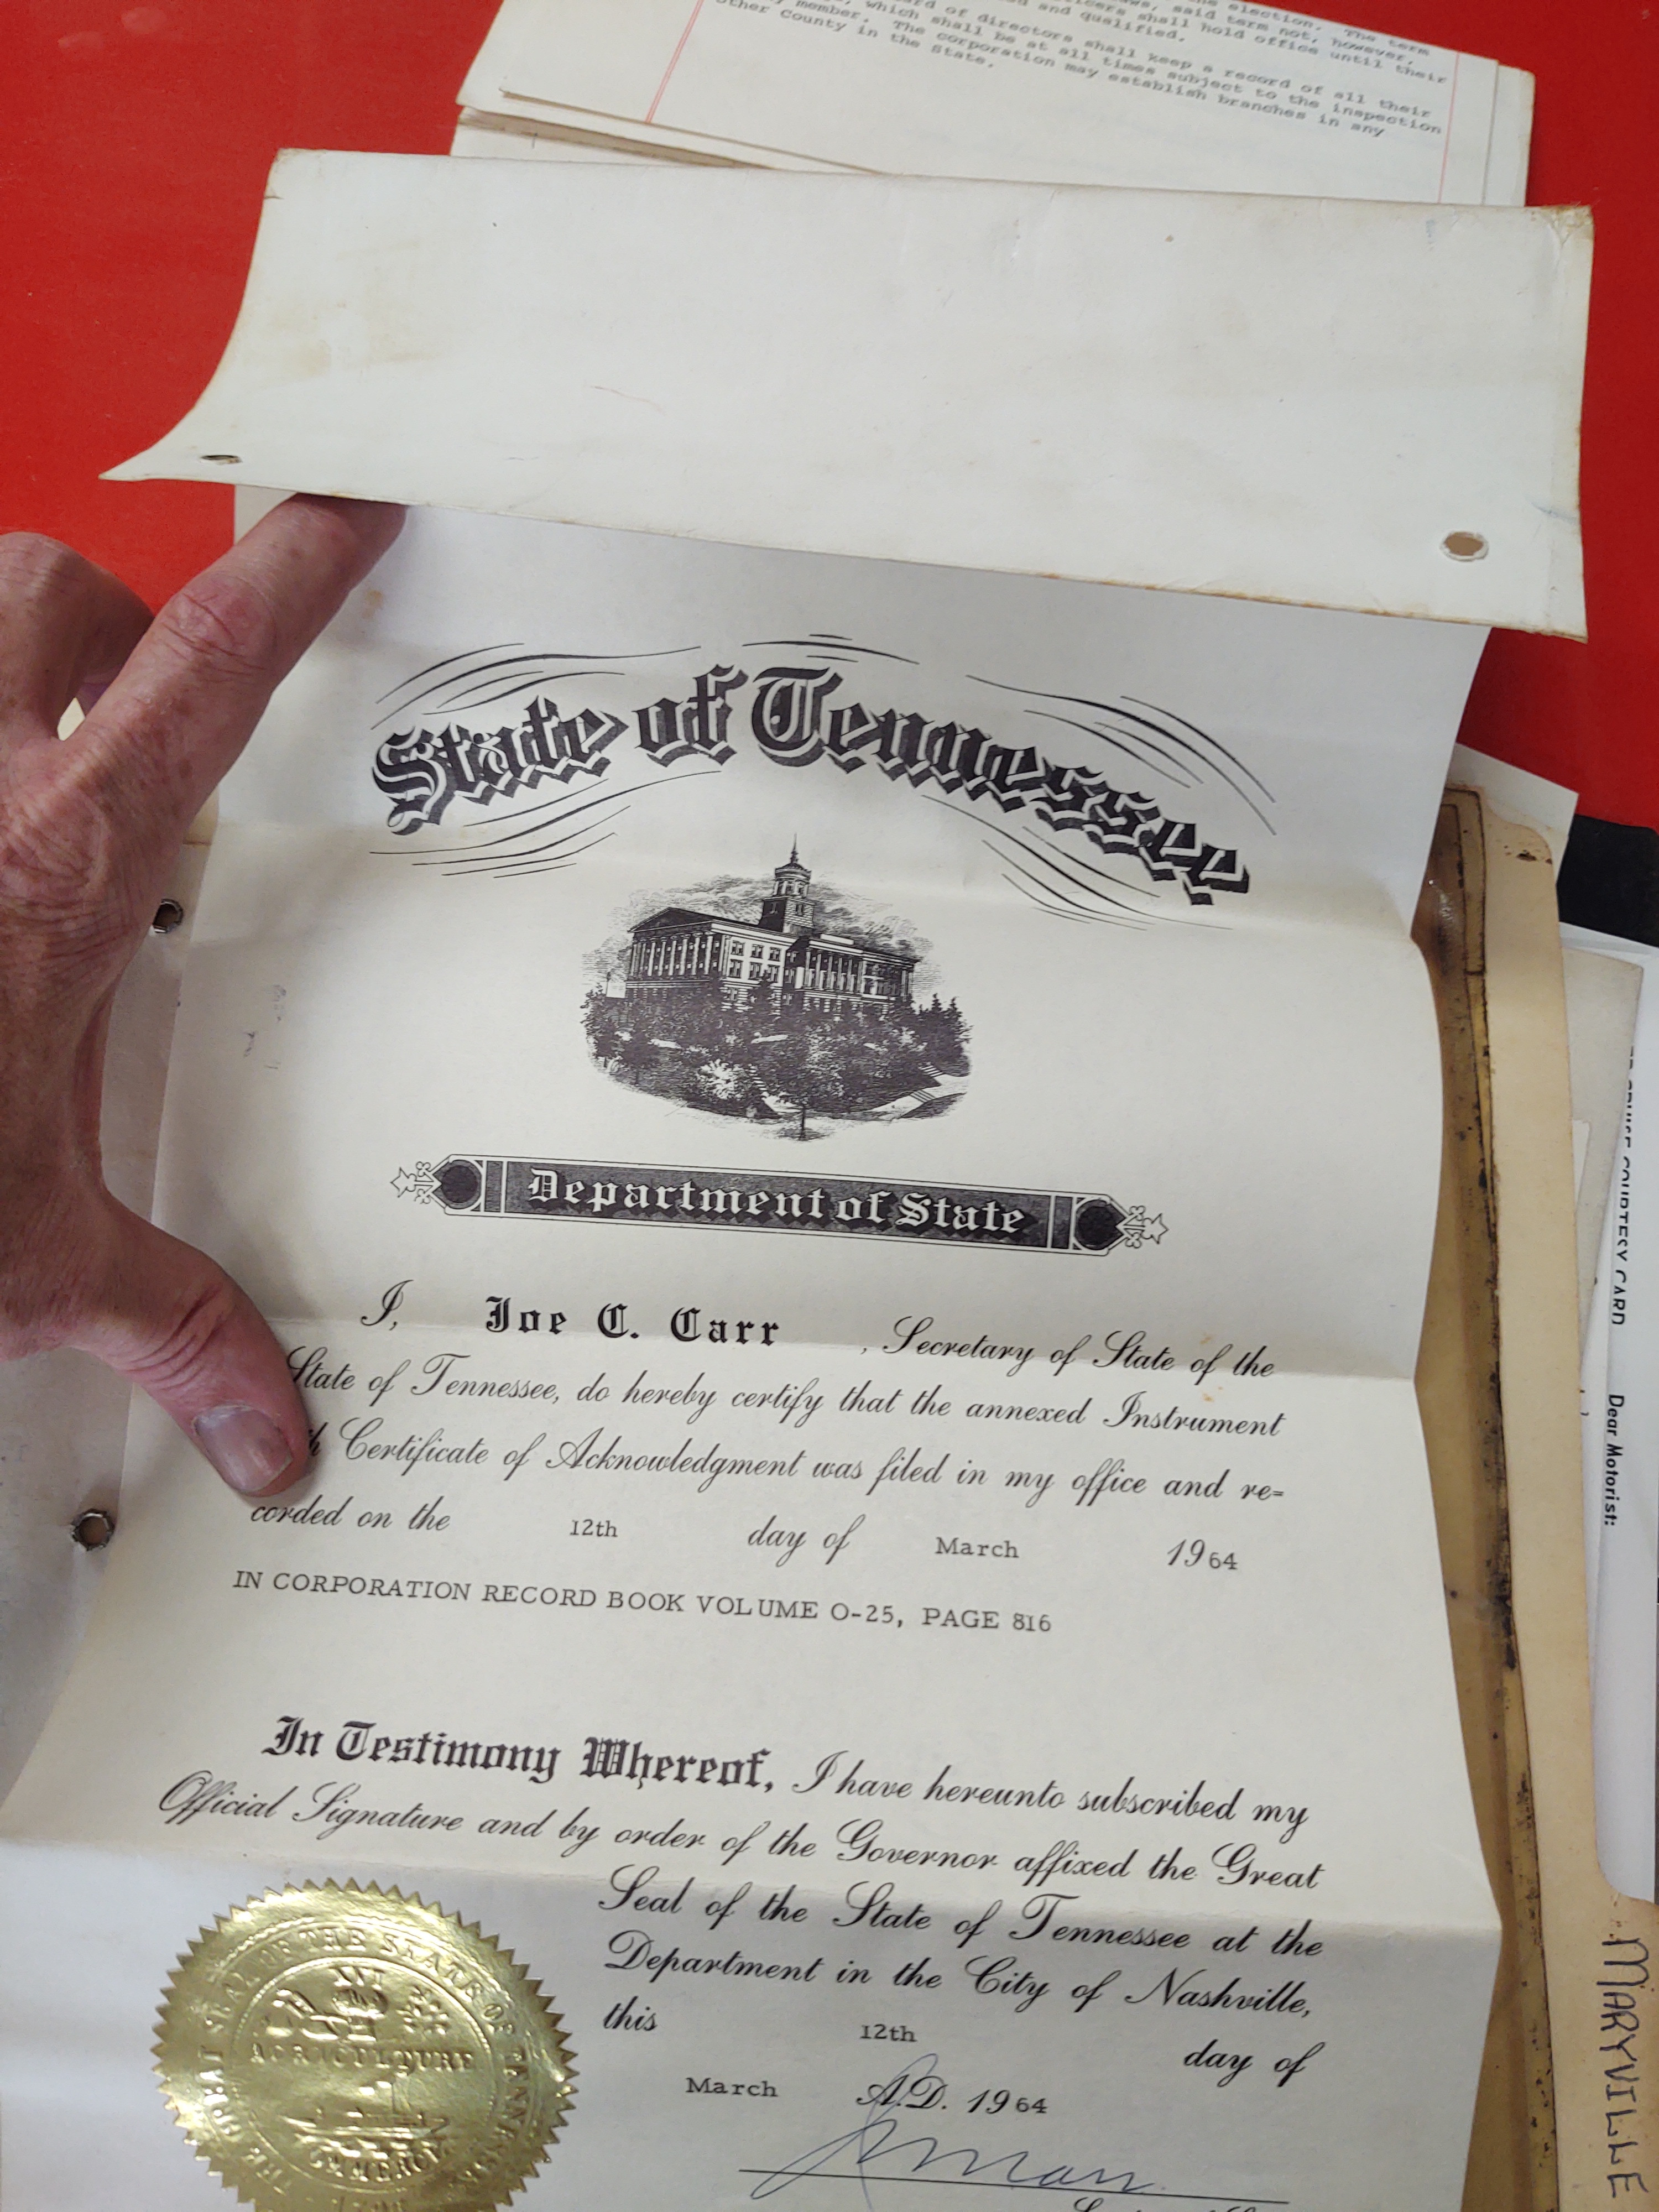 the election. The term
said term not, however,
officers shall hold office until their
and qualified.
of directors shall keep a record of all their
which shall be at all times subject to the inspection
member. The corporation may establish branches in any
other County in the State.
State of Tennessee
Department of State
I, Joe C. Carr, Secretary of State of the
State of Tennessee, do hereby certify that the annexed Instrument
Certificate of Acknowledgment was filed in my office and re=
corded on the 12th day of March 1964
IN CORPORATION RECORD BOOK VOLUME O-25, PAGE 816
In Testimony Whereof, I have hereunto subscribed my
Official Signature and by order of the Governor affixed the Great
Seal of the State of Tennessee at the
Department in the City of Nashville,
this 12th day of
March A.D. 1964
THE GREAT SEAL OF THE STATE OF TENNESSEE
XVI
AGRICULTURE
COMMERCE
COURTESY CARD
Dear Motorist:
MARYVILLE